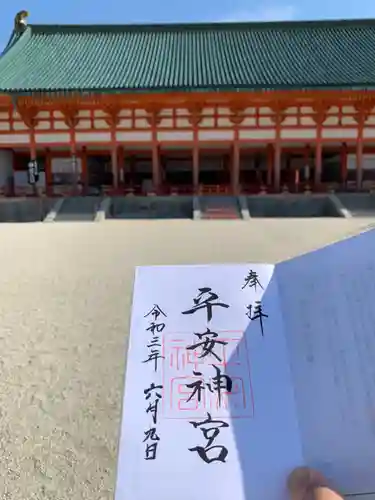 奉拝
平安神宮
令和三年六月九日